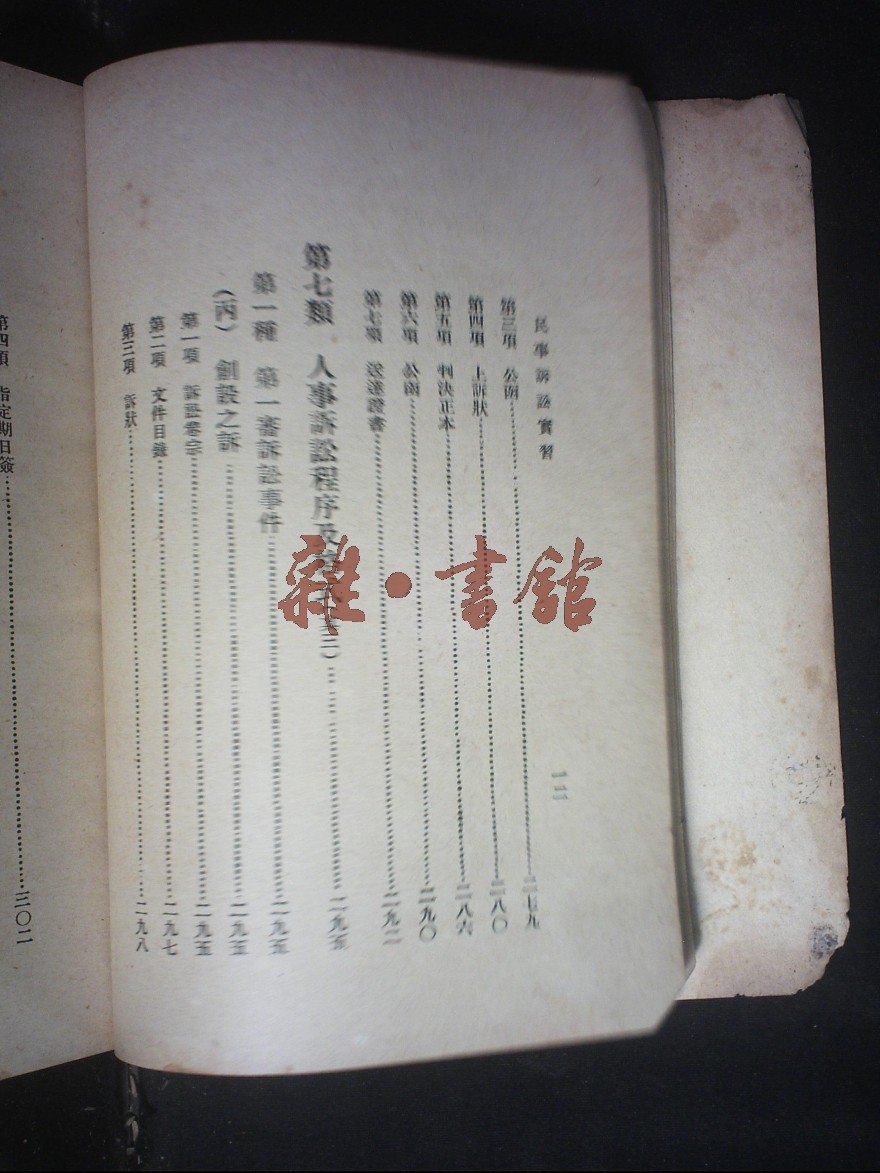 民事訴訟實習
一二
第三項 公函……二七九
第四項 上訴狀……二八〇
第五項 判決正本……二八六
第六項 公函……二九〇
第七項 送達證書……二九二
第七類 人事訴訟程序及……三）……二九五
第一種 第一審訴訟事件……二九五
（丙） 創設之訴……二九五
第一項 訴訟卷宗……二九五
第二項 文件目錄……二九七
第三項 訴狀……二九八
第四項 指定期日簽……三〇二
雜·書館